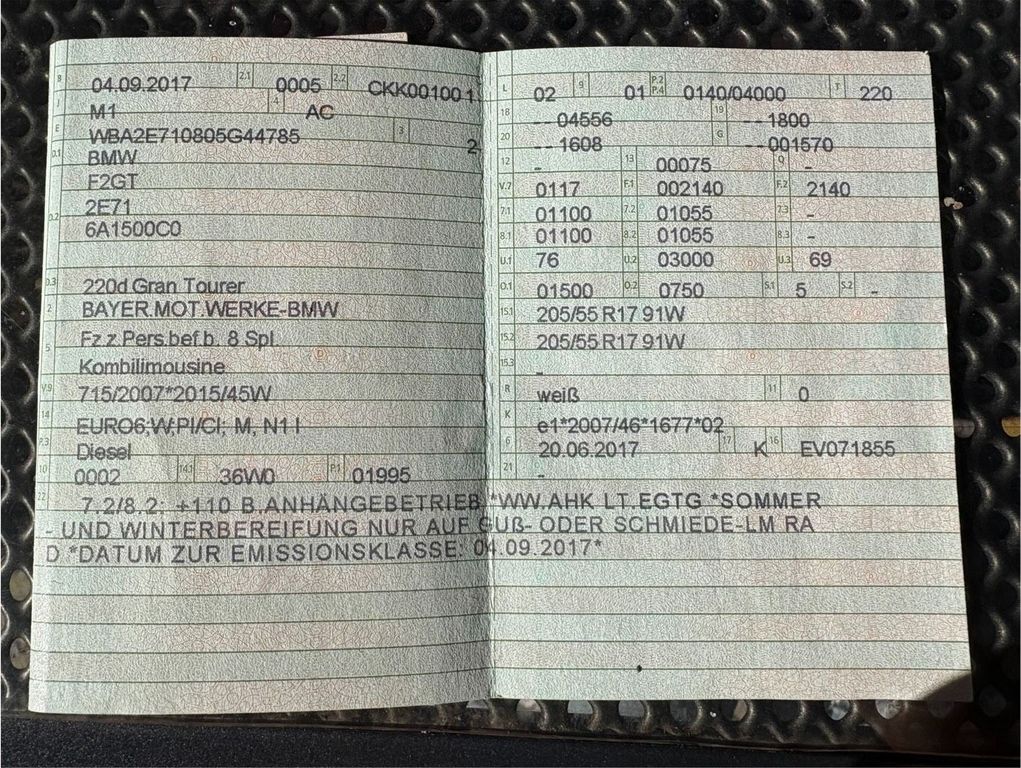 B 04.09.2017 2.1 0005 2.2 CKK00100 1
J M1 4 AC
E WBA2E710805G44785 3 2
D.1 BMW
F2GT
D.2 2E71
6A1500C0
D.3 220d Gran Tourer
2 BAYER.MOT.WERKE-BMW
5 Fz.z.Pers.bef.b. 8 Spl
Kombilimousine
V.9 715/2007*2015/45W
14 EURO6;W,PI/CI; M, N1 I
P.3 Diesel
10 0002 14.1 36W0 P.1 01995
L 02 9 01 P.2 P.4 0140/04000 T 220
18 --04556 19 --1800
20 --1608 G --001570
12 - 13 00075 Q -
V.7 0117 F.1 002140 F.2 2140
7.1 01100 7.2 01055 7.3 -
8.1 01100 8.2 01055 8.3 -
U.1 76 U.2 03000 U.3 69
O.1 01500 O.2 0750 S.1 5 S.2 -
15.1 205/55 R17 91W
15.2 205/55 R17 91W
15.3 -
R weiß 11 0
K e1*2007/46*1677*02
6 20.06.2017 17 K 16 EV071855
21 -
22 7.2/8.2: +110 B.ANHÄNGEBETRIEB *WW.AHK LT.EGTG *SOMMER
- UND WINTERBEREIFUNG NUR AUF GUß- ODER SCHMIEDE-LM RA
D *DATUM ZUR EMISSIONSKLASSE: 04.09.2017*